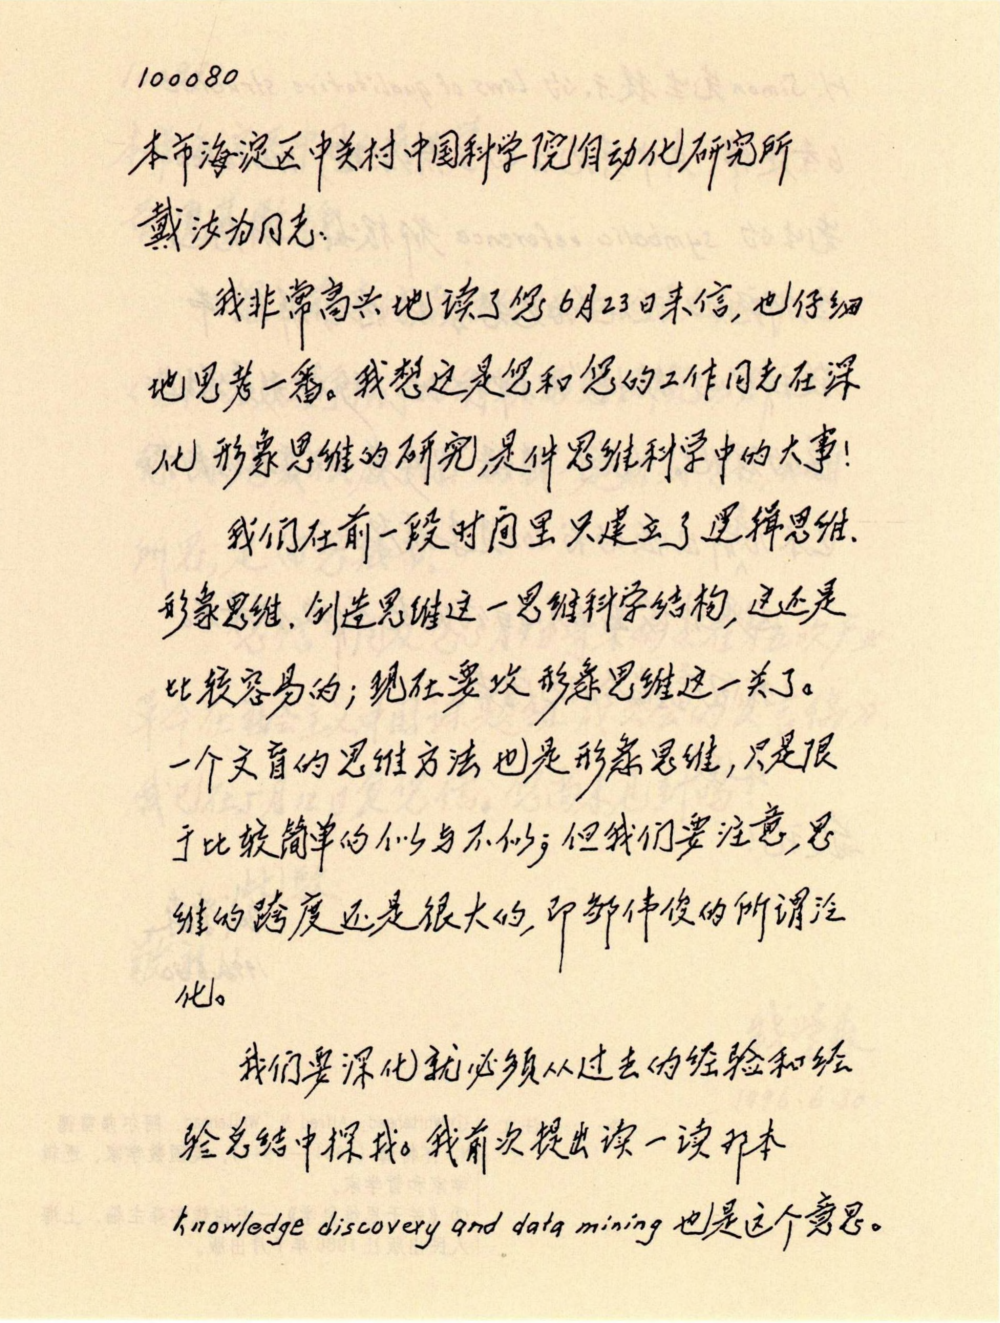 100080
本市海淀区中关村中国科学院自动化研究所
戴汝为同志:
我非常高兴地读了您6月23日来信,也仔细
地思考一番。我想这是您和您的工作同志在深
化形象思维的研究,是件思维科学中的大事!
我们在前一段时间里只建立了逻辑思维、
形象思维、创造思维这一思维科学结构,这还是
比较容易的;现在要攻形象思维这一关了。
一个文盲的思维方法也是形象思维,只是限
于比较简单的似与不似;但我们要注意,思
维的跨度还是很大的,即邹伟俊的所谓泛
化。
我们要深化就必须从过去的经验和经
验总结中探找。我前次提出读一读那本
knowledge discovery and data mining也是这个意思。